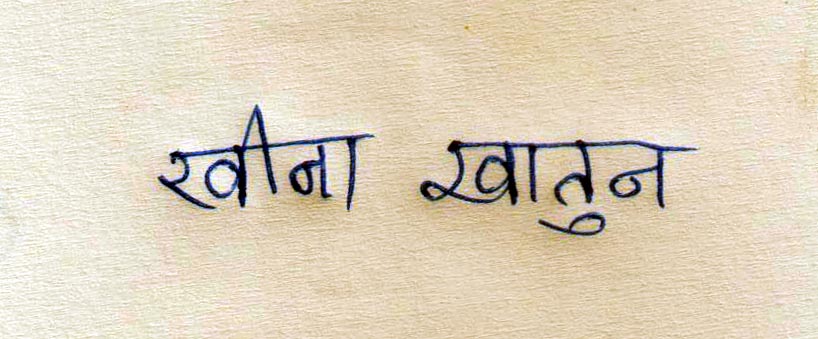 रवीना खातुन